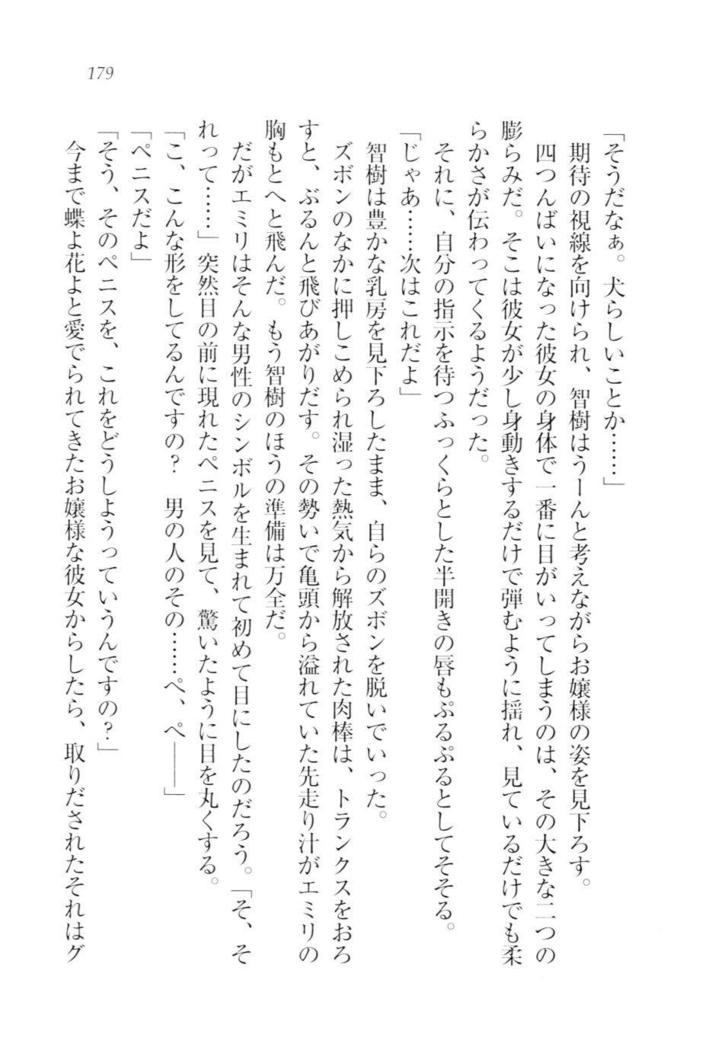 179
「そうだなぁ。犬らしいことか……」
期待の視線を向けられ、智樹はうーんと考えながらお嬢様の姿を見下ろす。
四つんばいになった彼女の身体で一番に目がいってしまうのは、その大きな二つの
膨らみだ。そこは彼女が少し身動きするだけで弾むように揺れ、見ているだけでも柔
らかさが伝わってくるようだった。
それに、自分の指示を待つふっくらとした半開きの唇もぷるぷるとしてそそる。
「じゃあ……次はこれだよ」
智樹は豊かな乳房を見下ろしたまま、自らのズボンを脱いでいった。
ズボンのなかに押しこめられ湿った熱気から解放された肉棒は、トランクスをおろ
すと、ぶるんと飛びあがりだす。その勢いで亀頭から溢れていた先走り汁がエミリの
胸もとへと飛んだ。もう智樹のほうの準備は万全だ。
だがエミリはそんな男性のシンボルを生まれて初めて目にしたのだろう。「そ、そ
れって……」突然目の前に現れたペニスを見て、驚いたように目を丸くする。
「こ、こんな形をしてるんですの？　男の人のその……ペ、ペ――」
「ペニスだよ」
「そう、そのペニスを、これをどうしようっていうんですの？」
今まで蝶よ花よと愛でられてきたお嬢様な彼女からしたら、取りだされたそれはグ